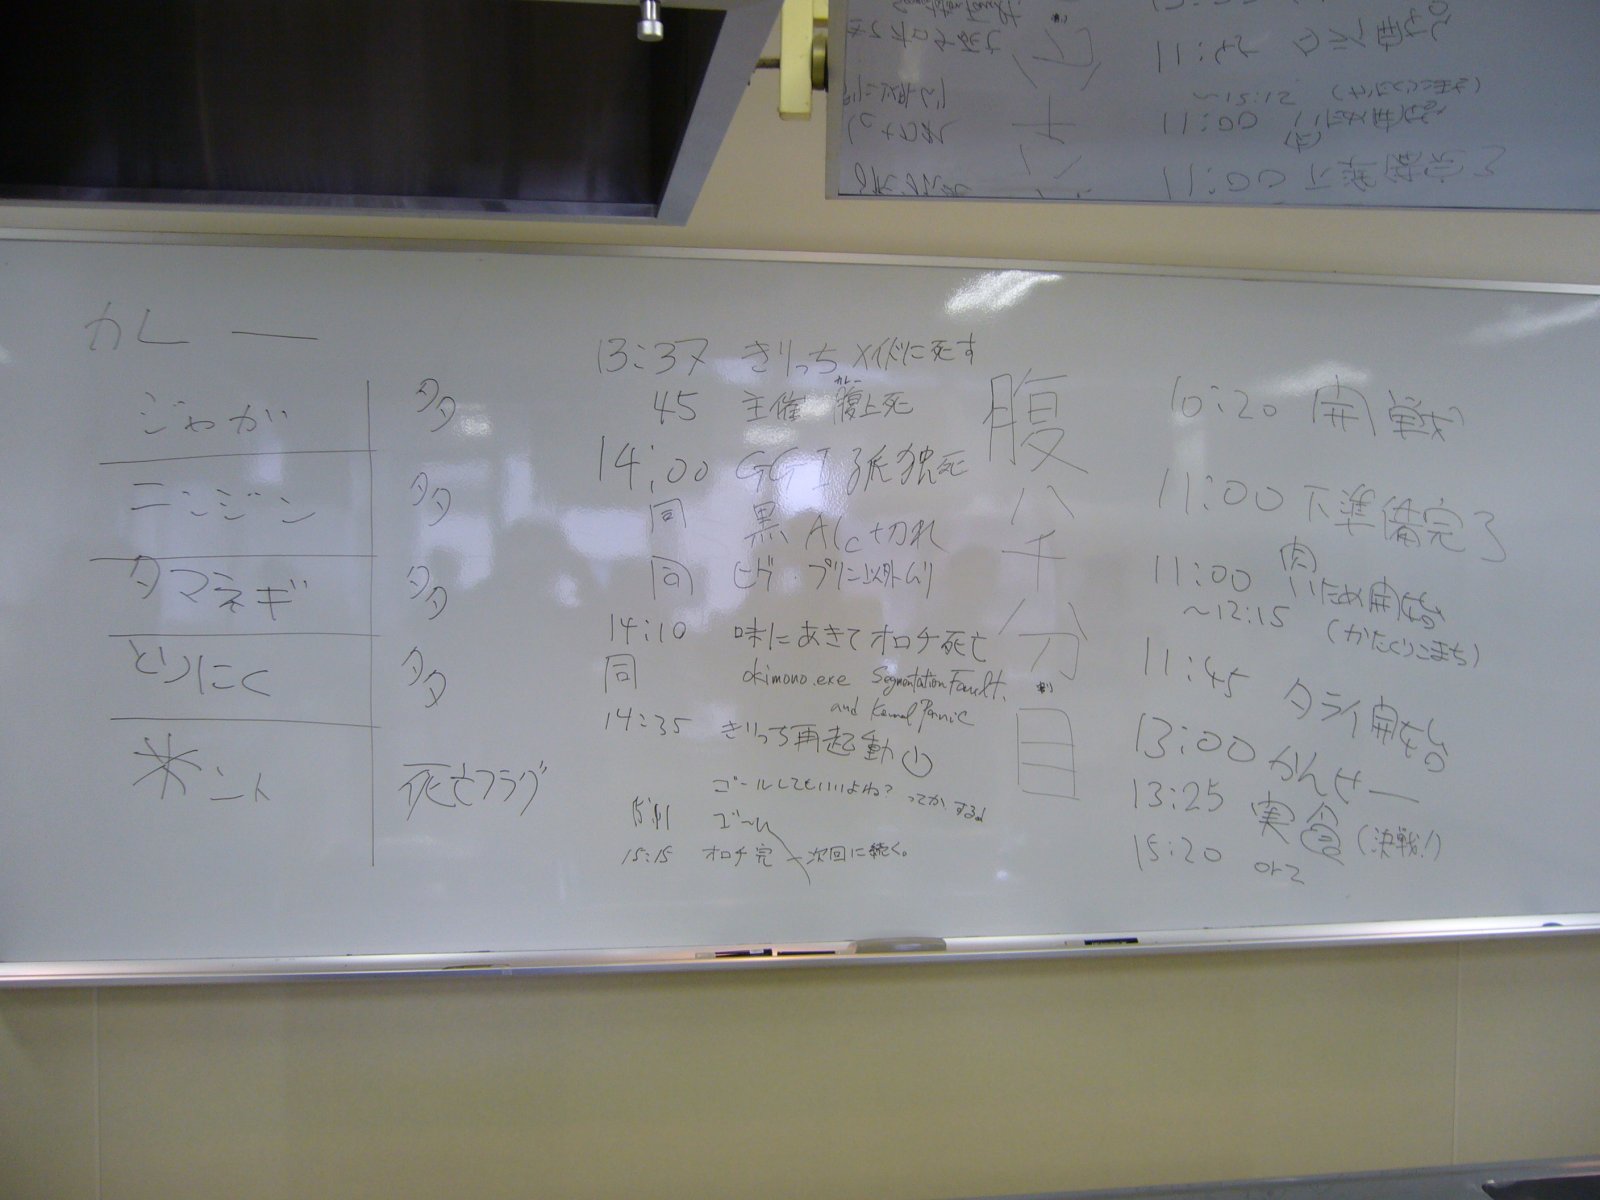 カレー
ジャガ 多
ニンジン 多
タマネギ 多
とりにく 多
米 死亡フラグ
13:37 きりっち メイドに死す
カレー
45 主催 腹上死
14:00 GGI 孤独死
同 黒 Alc+切れ
同 ヒゲ プリン以外ムリ
14:10 味にあきてオロチ死亡
同 okimono.exe Segmentation Fault,
and Kernel Panic
14:35 きりっち再起動
ゴールしてもいいよね? ってか、する!
15:11 ゴール
15:15 オロチ完 ー次回に続く。
腹八千分目
10:20 開戦
11:00 下準備完了
11:00 肉いため開始
~12:15 (かたくりこまち)
11:45 タライ開始
13:00 かんせー
13:25 実食 (決戦!)
15:20 orz